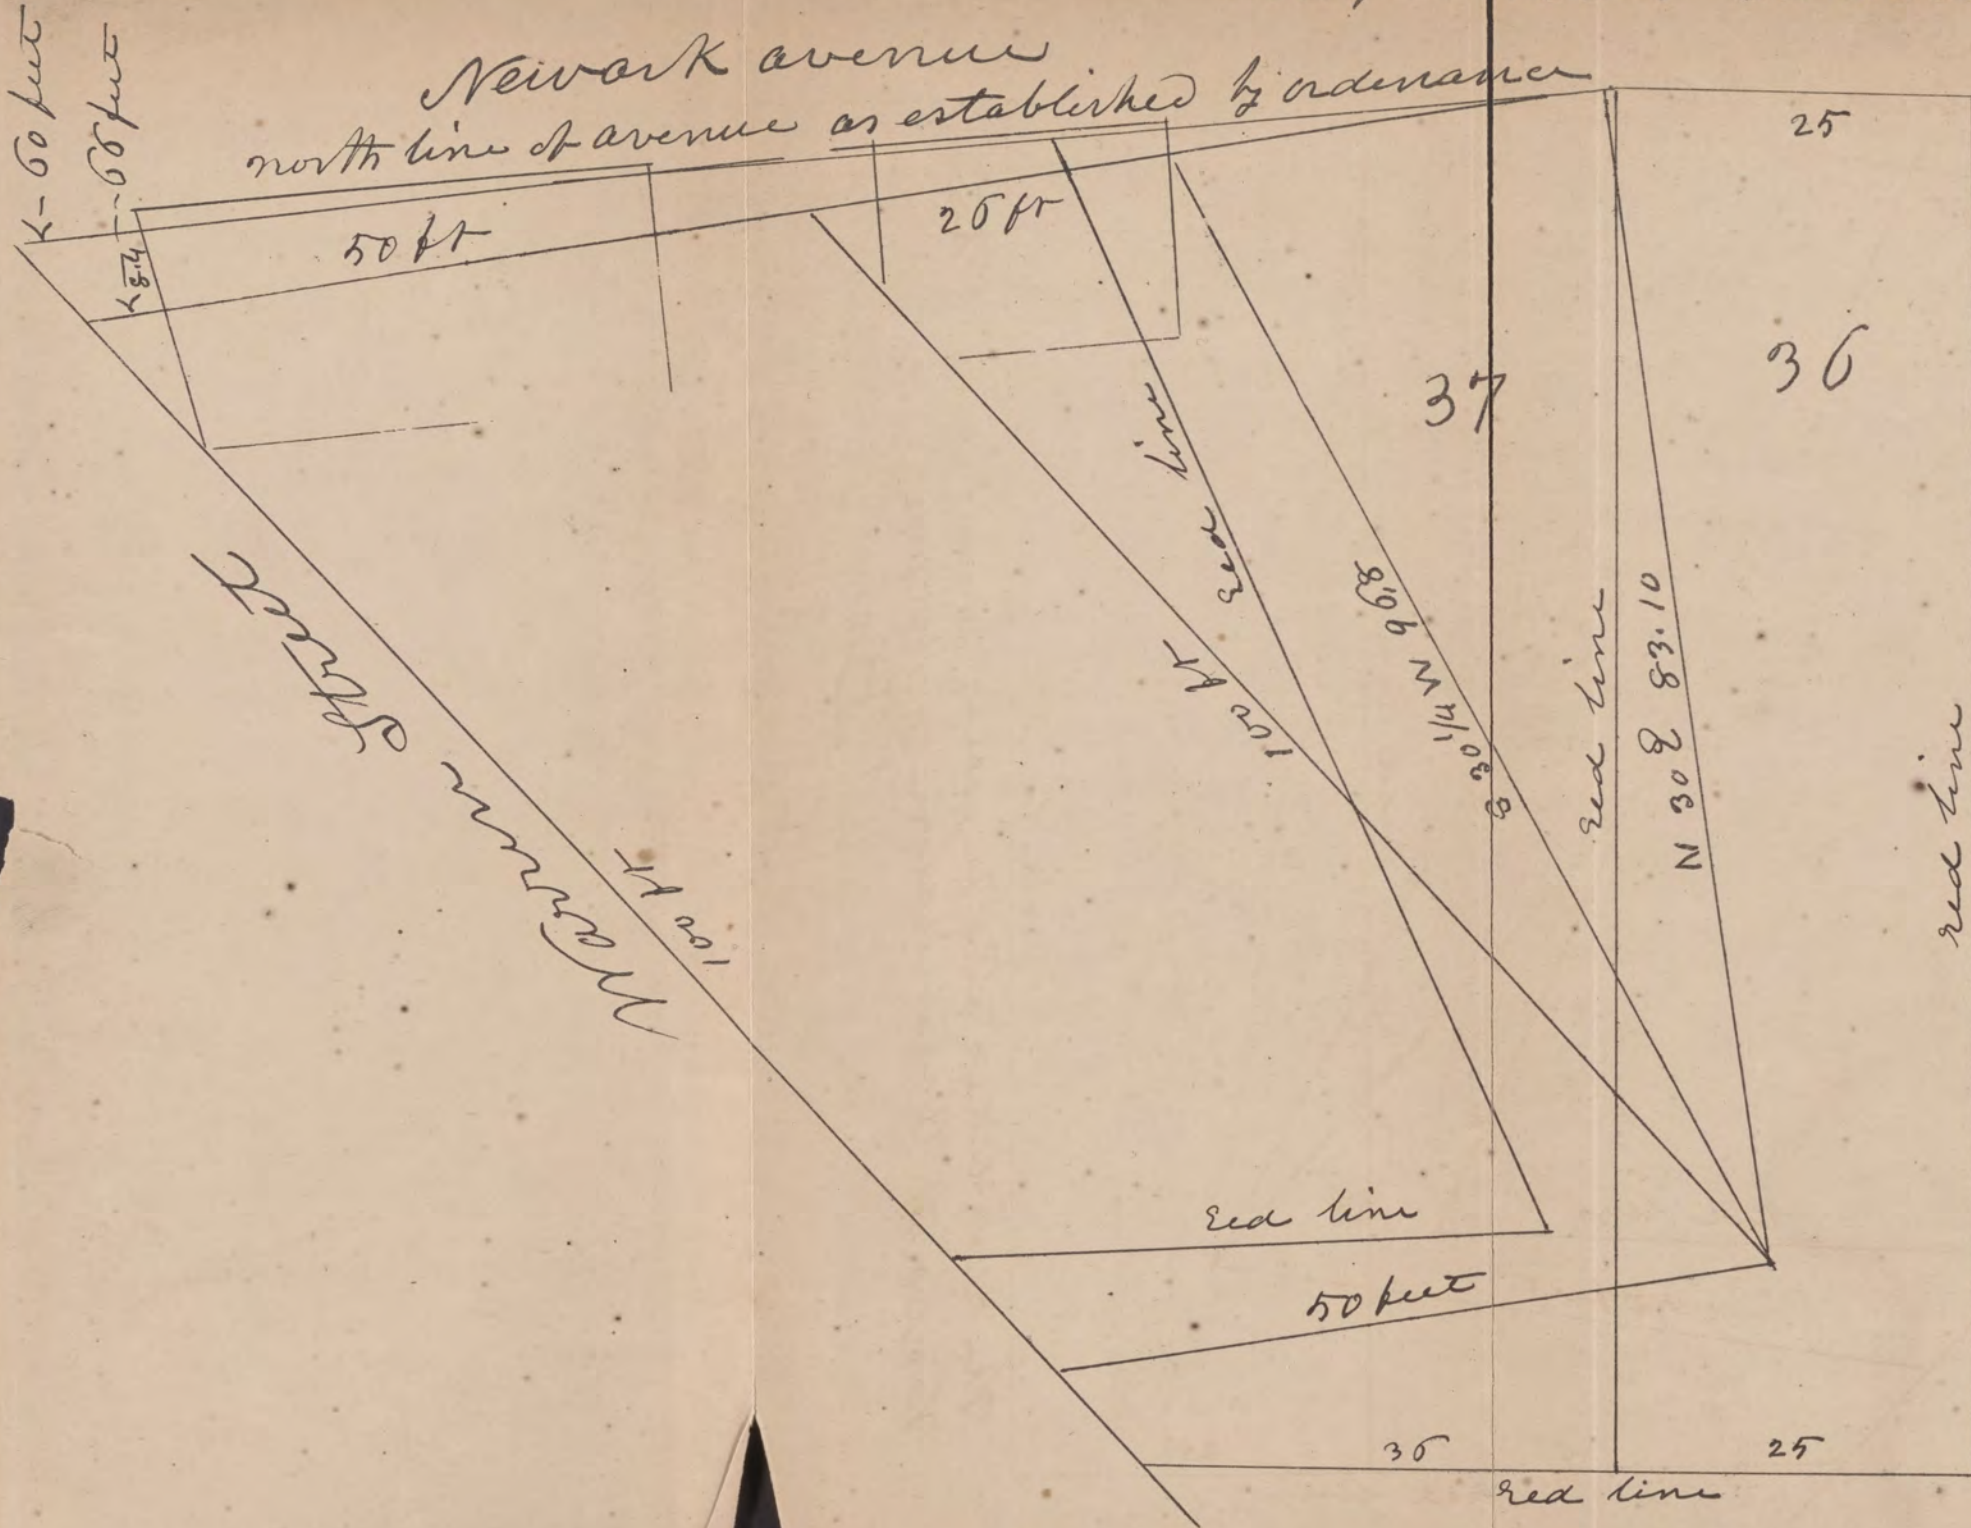 Newark avenue
north line of avenue as established by ordenance
K-60 feet
K 8.4 --66 feet
50 ft
26 ft
25
37
36
red line
100 ft
S 30 1/4 W 96.8
red line
N 30 E 83.10
red line
Warren Street
100 ft
red line
50 feet
36
25
red line